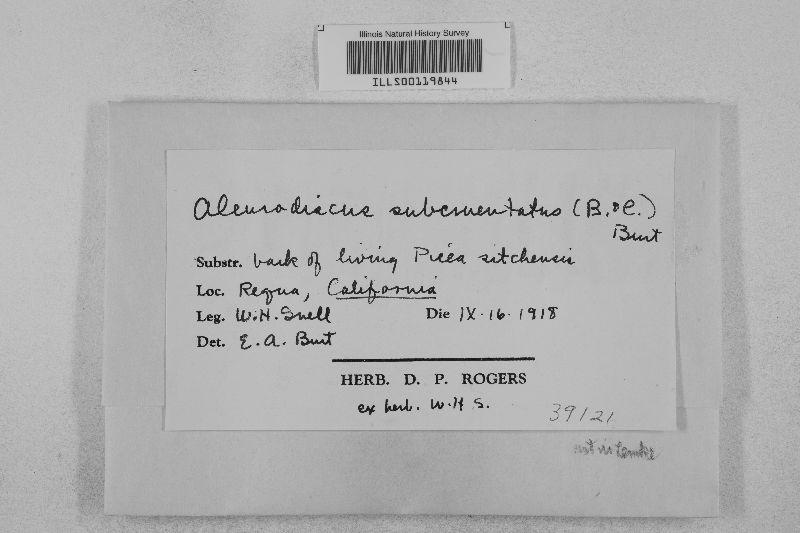 Illinois Natural History Survey
ILLS00119844
Aleurodiscus subcruentatus (B. & C.)
Burt
Substr. bark of living Picea sitchensis
Loc. Requa, California
Leg. W.H. Snell Die IX·16·1918
Det. E. A. Burt
HERB. D. P. ROGERS
ex herb. W. H S.
39121
not in Lemke